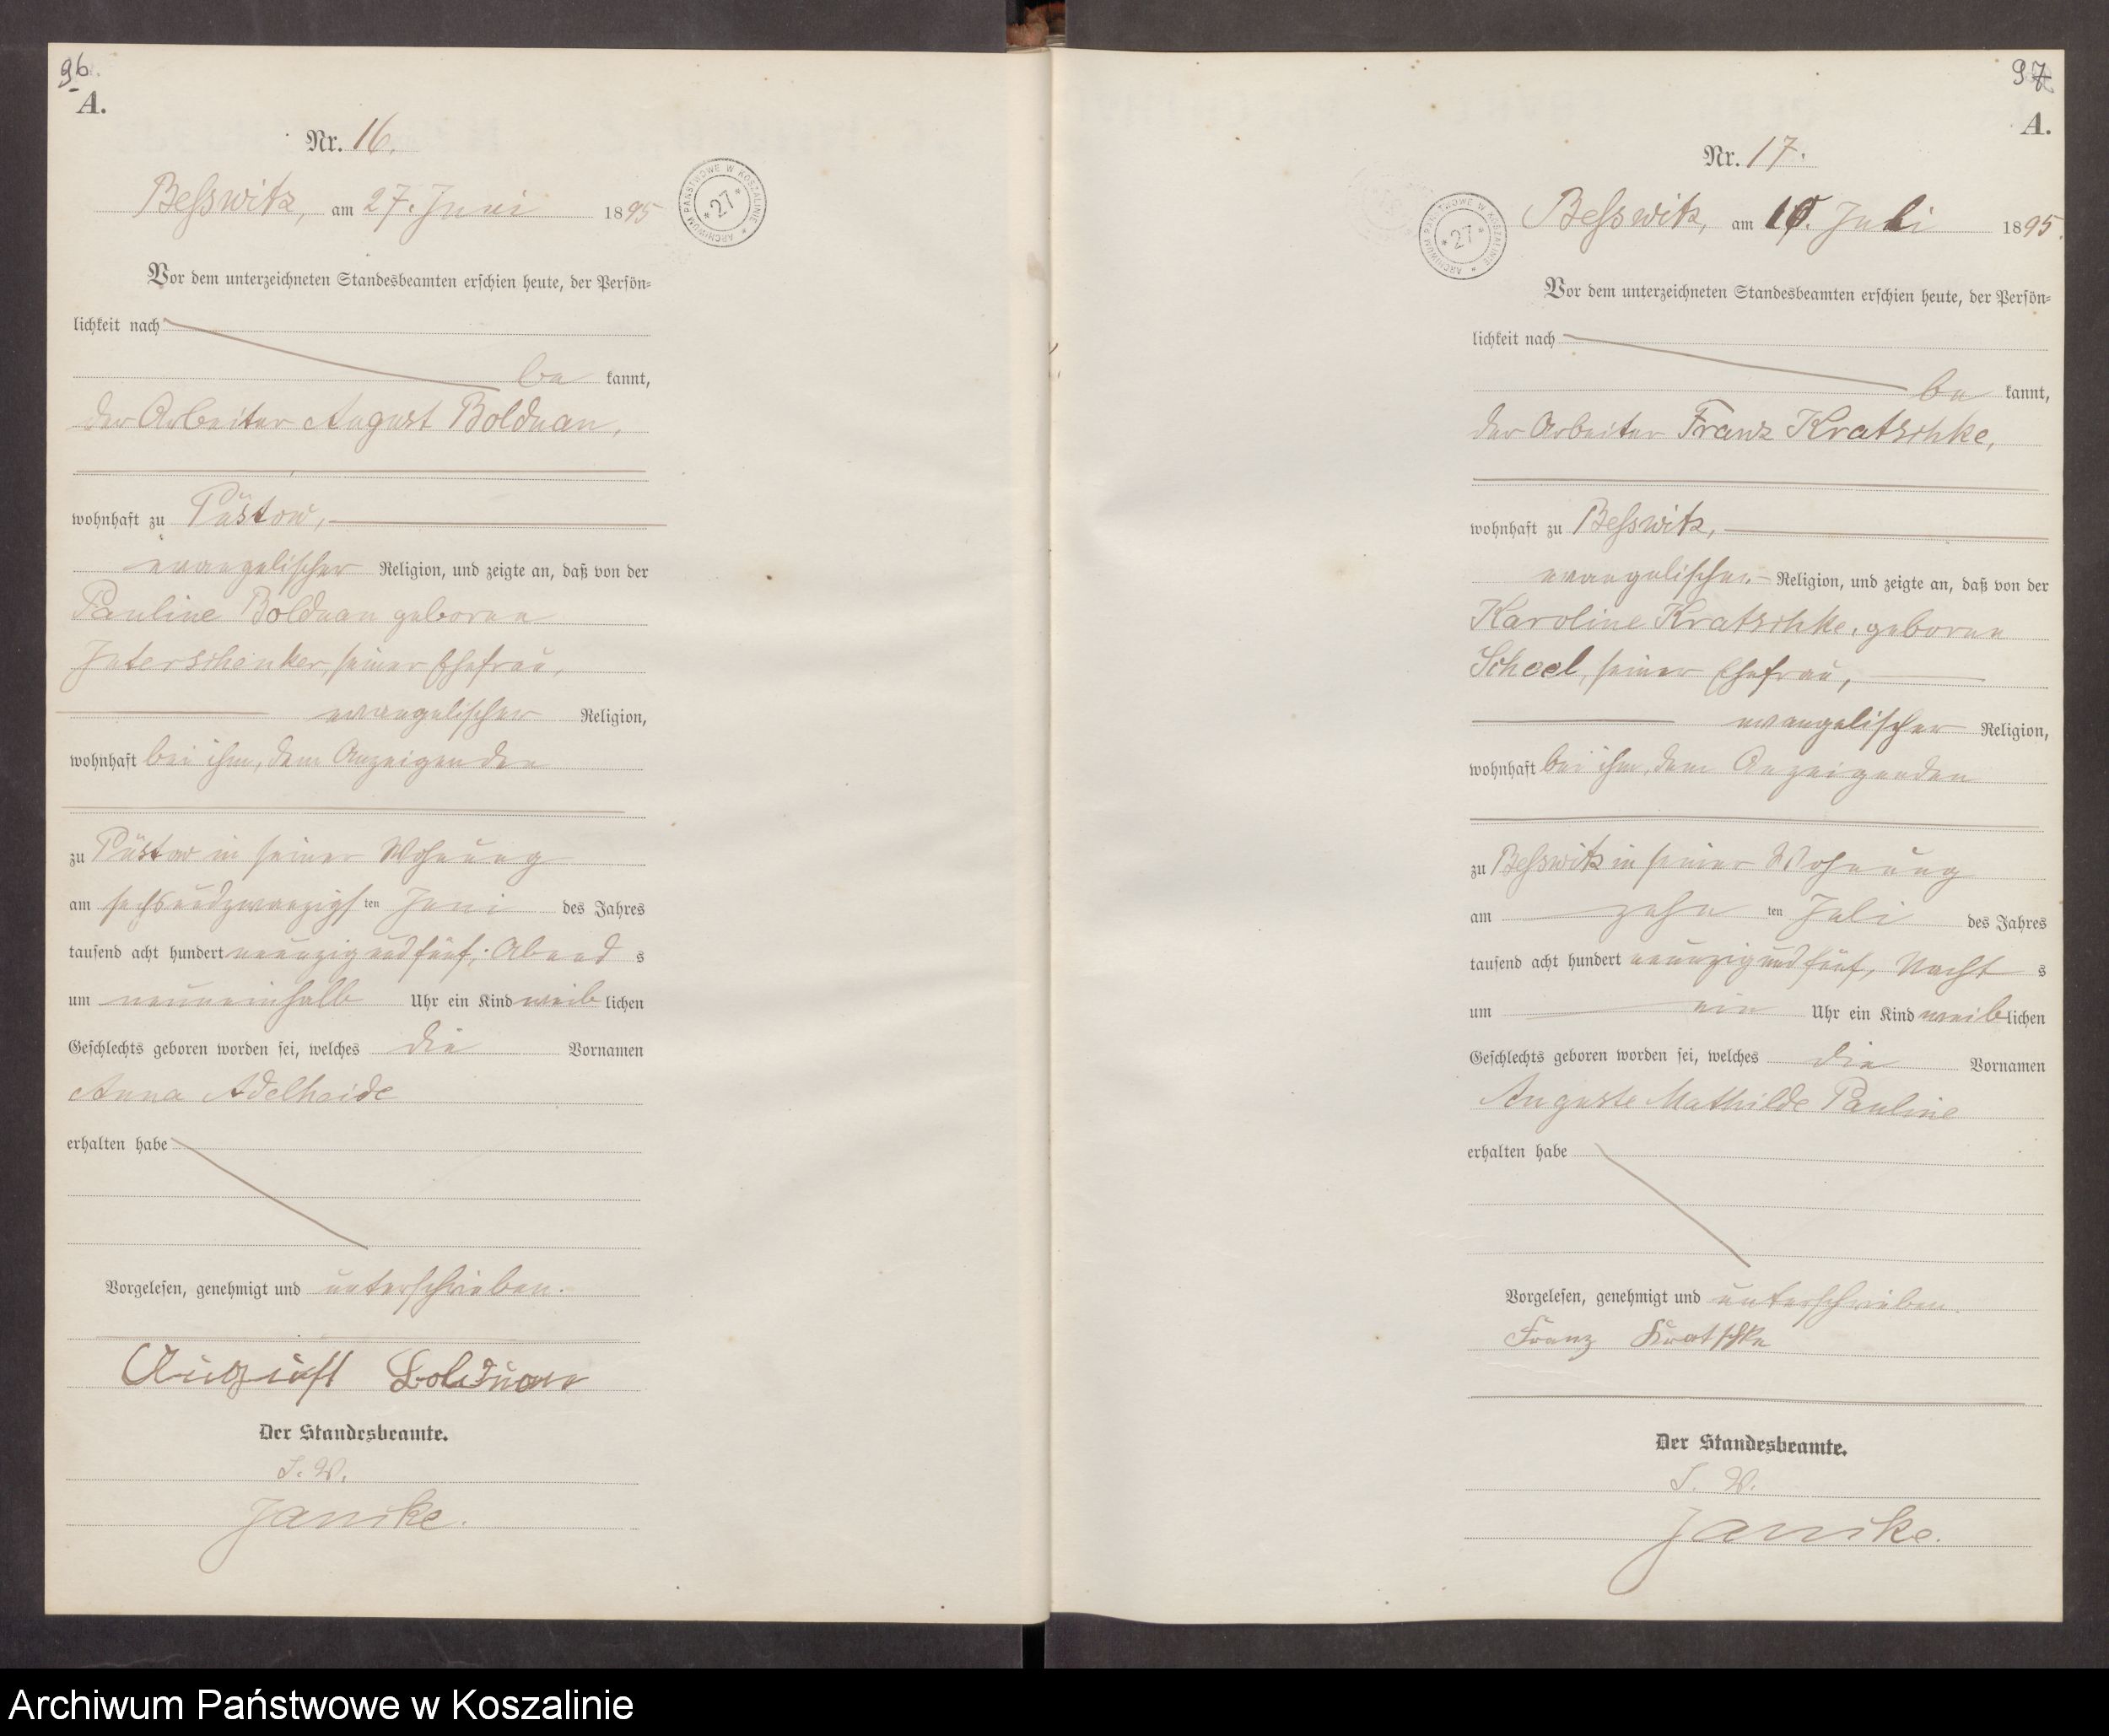 96.
A.
Nr. 16.
Beßwitz, am 27. Juni 1895
ARCHIWUM PAŃSTWOWE W KOSZALINIE * 27 *
Vor dem unterzeichneten Standesbeamten erschien heute, der Persön-
lichkeit nach
be kannt,
der Arbeiter August Bolduan,
wohnhaft zu Püstow,
evangelischer Religion, und zeigte an, daß von der
Pauline Bolduan geborene
seiner Ehefrau,
evangelischer Religion,
wohnhaft bei ihm, dem Anzeigenden
zu Püstow in seiner Wohnung
am sechsundzwanzigsten Juni des Jahres
tausend acht hundert neunzig und fünf, Abends
um neuneinhalb Uhr ein Kind weiblichen
Geschlechts geboren worden sei, welches die Vornamen
Anna Adelheide
erhalten habe
Vorgelesen, genehmigt und unterschrieben.
August Bolduan
Der Standesbeamte.
J. V.
Janike.
97
A.
Nr. 17.
Beßwitz, am 10. Juli 1895.
ARCHIWUM PAŃSTWOWE W KOSZALINIE * 27 *
Vor dem unterzeichneten Standesbeamten erschien heute, der Persön-
lichkeit nach
be kannt,
der Arbeiter Franz Kratschke,
wohnhaft zu Beßwitz,
evangelischer Religion, und zeigte an, daß von der
Karoline Kratschke, geborene
Scheel, seiner Ehefrau,
evangelischer Religion,
wohnhaft bei ihm, dem Anzeigenden
zu Beßwitz in seiner Wohnung
am zehn ten Juli des Jahres
tausend acht hundert neunzig und fünf, Nachts
um ein Uhr ein Kind weiblichen
Geschlechts geboren worden sei, welches die Vornamen
Auguste Mathilde Pauline
erhalten habe
Vorgelesen, genehmigt und unterschrieben.
Franz Kratschke
Der Standesbeamte.
J. V.
Janike.
Archiwum Państwowe w Koszalinie